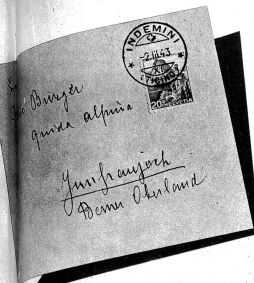 INDEMINI
-2.III.43
(TICINO)
20 HELVETIA
Burger
guida alpina
Jungfraujoch
Berner Oberland